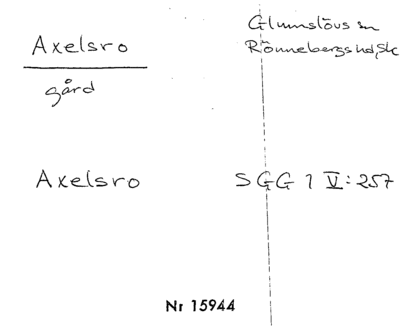 Axelsro
gård
Glumslövs sn
Rönnebergs hd, Sk
Axelsro
SGG 1 V: 257
Nr 15944